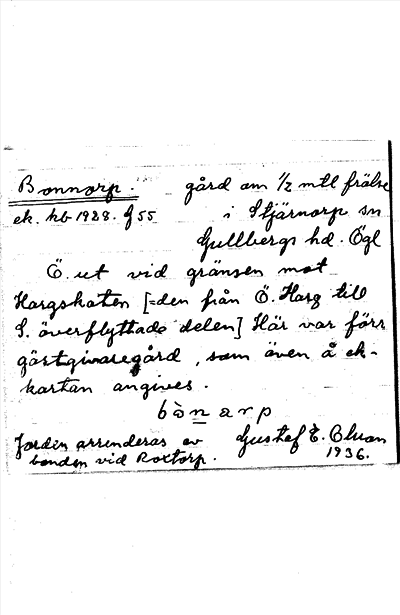 Bonnorp. gård om 1/2 mtl frälse
ek. kb 1928. J 55 i Stjärnorp sn
Gullbergs hd. Ögl
Ö. ut vid gränsen mot
Hargskaten [=den från Ö. Harg till
S. överflyttade delen] Här var förr
gästgivaregård, som även å ek-
kartan angives.
bònarp
Jorden arrenderas av Gustaf E.
bonden vid Roxtorp. 1936.